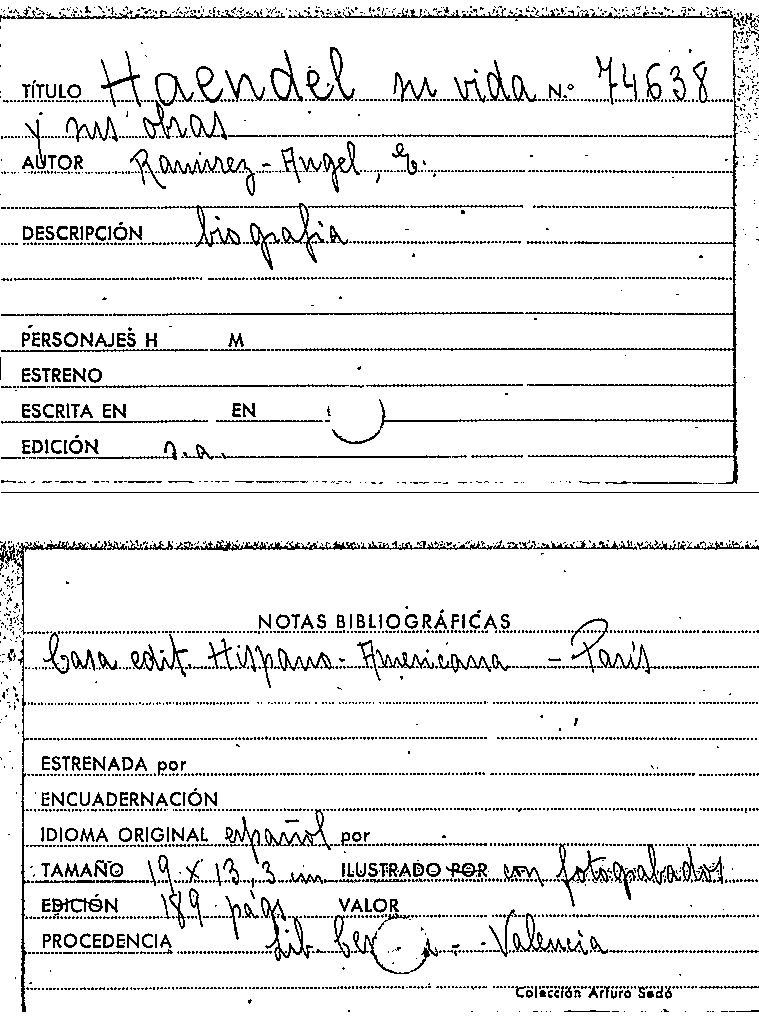 TÍTULO Haendel su vida N.º 74638
y sus obras
AUTOR Ramirez-Angel, E.
DESCRIPCIÓN biografia
PERSONAJES H M
ESTRENO
ESCRITA EN EN
EDICIÓN s.a.
NOTAS BIBLIOGRÁFICAS
Casa edit. Hispano-Americana - París
ESTRENADA por
ENCUADERNACIÓN
IDIOMA ORIGINAL español por
TAMAÑO 19 x 13,3 cm ILUSTRADO POR con fotograbados
EDICIÓN 189 págs VALOR
PROCEDENCIA Lib. - Valencia
Colección Arturo Sedó